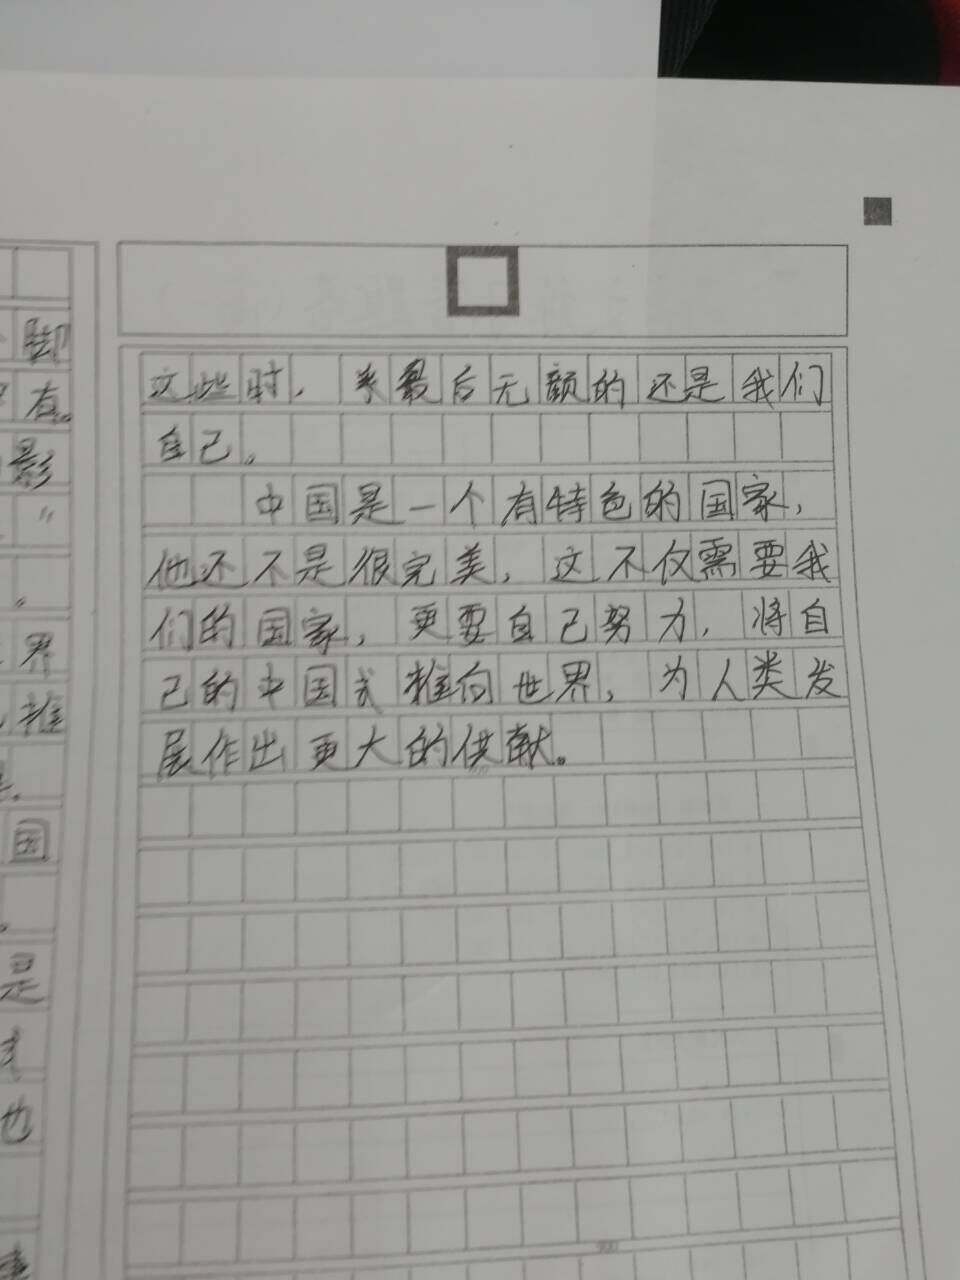 脚
有。
影
”
。
界
推
国
。
是
也
这些时，最后无颜的还是我们
自己。
中国是一个有特色的国家，
他还不是很完美，这不仅需要我
们的国家，更要自己努力，将自
己的中国式推向世界，为人类发
展作出更大的供献。